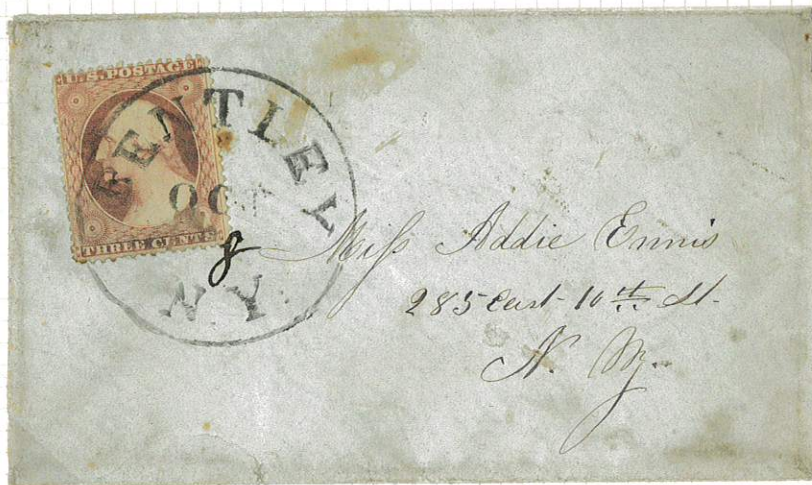 U.S. POSTAGE
THREE CENTS
BENTLEY
OCT
8
N Y
Miss Addie Ennis
285 East 10th St.
N. Y.